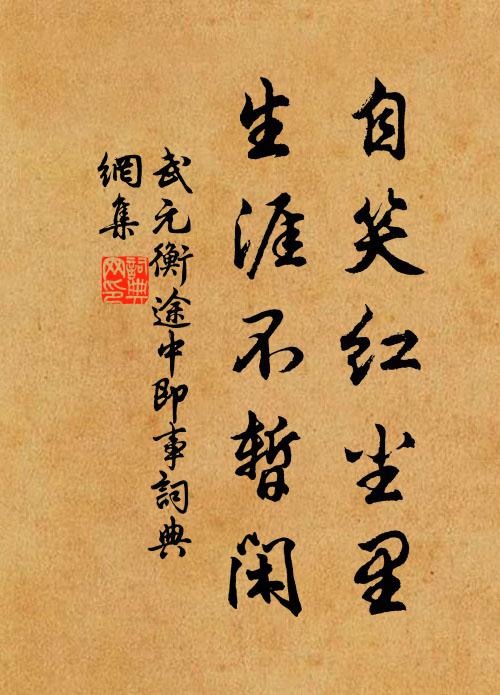 自笑红尘里
生涯不暫闲
武元衡途中即事詞典
網集
詞典网印